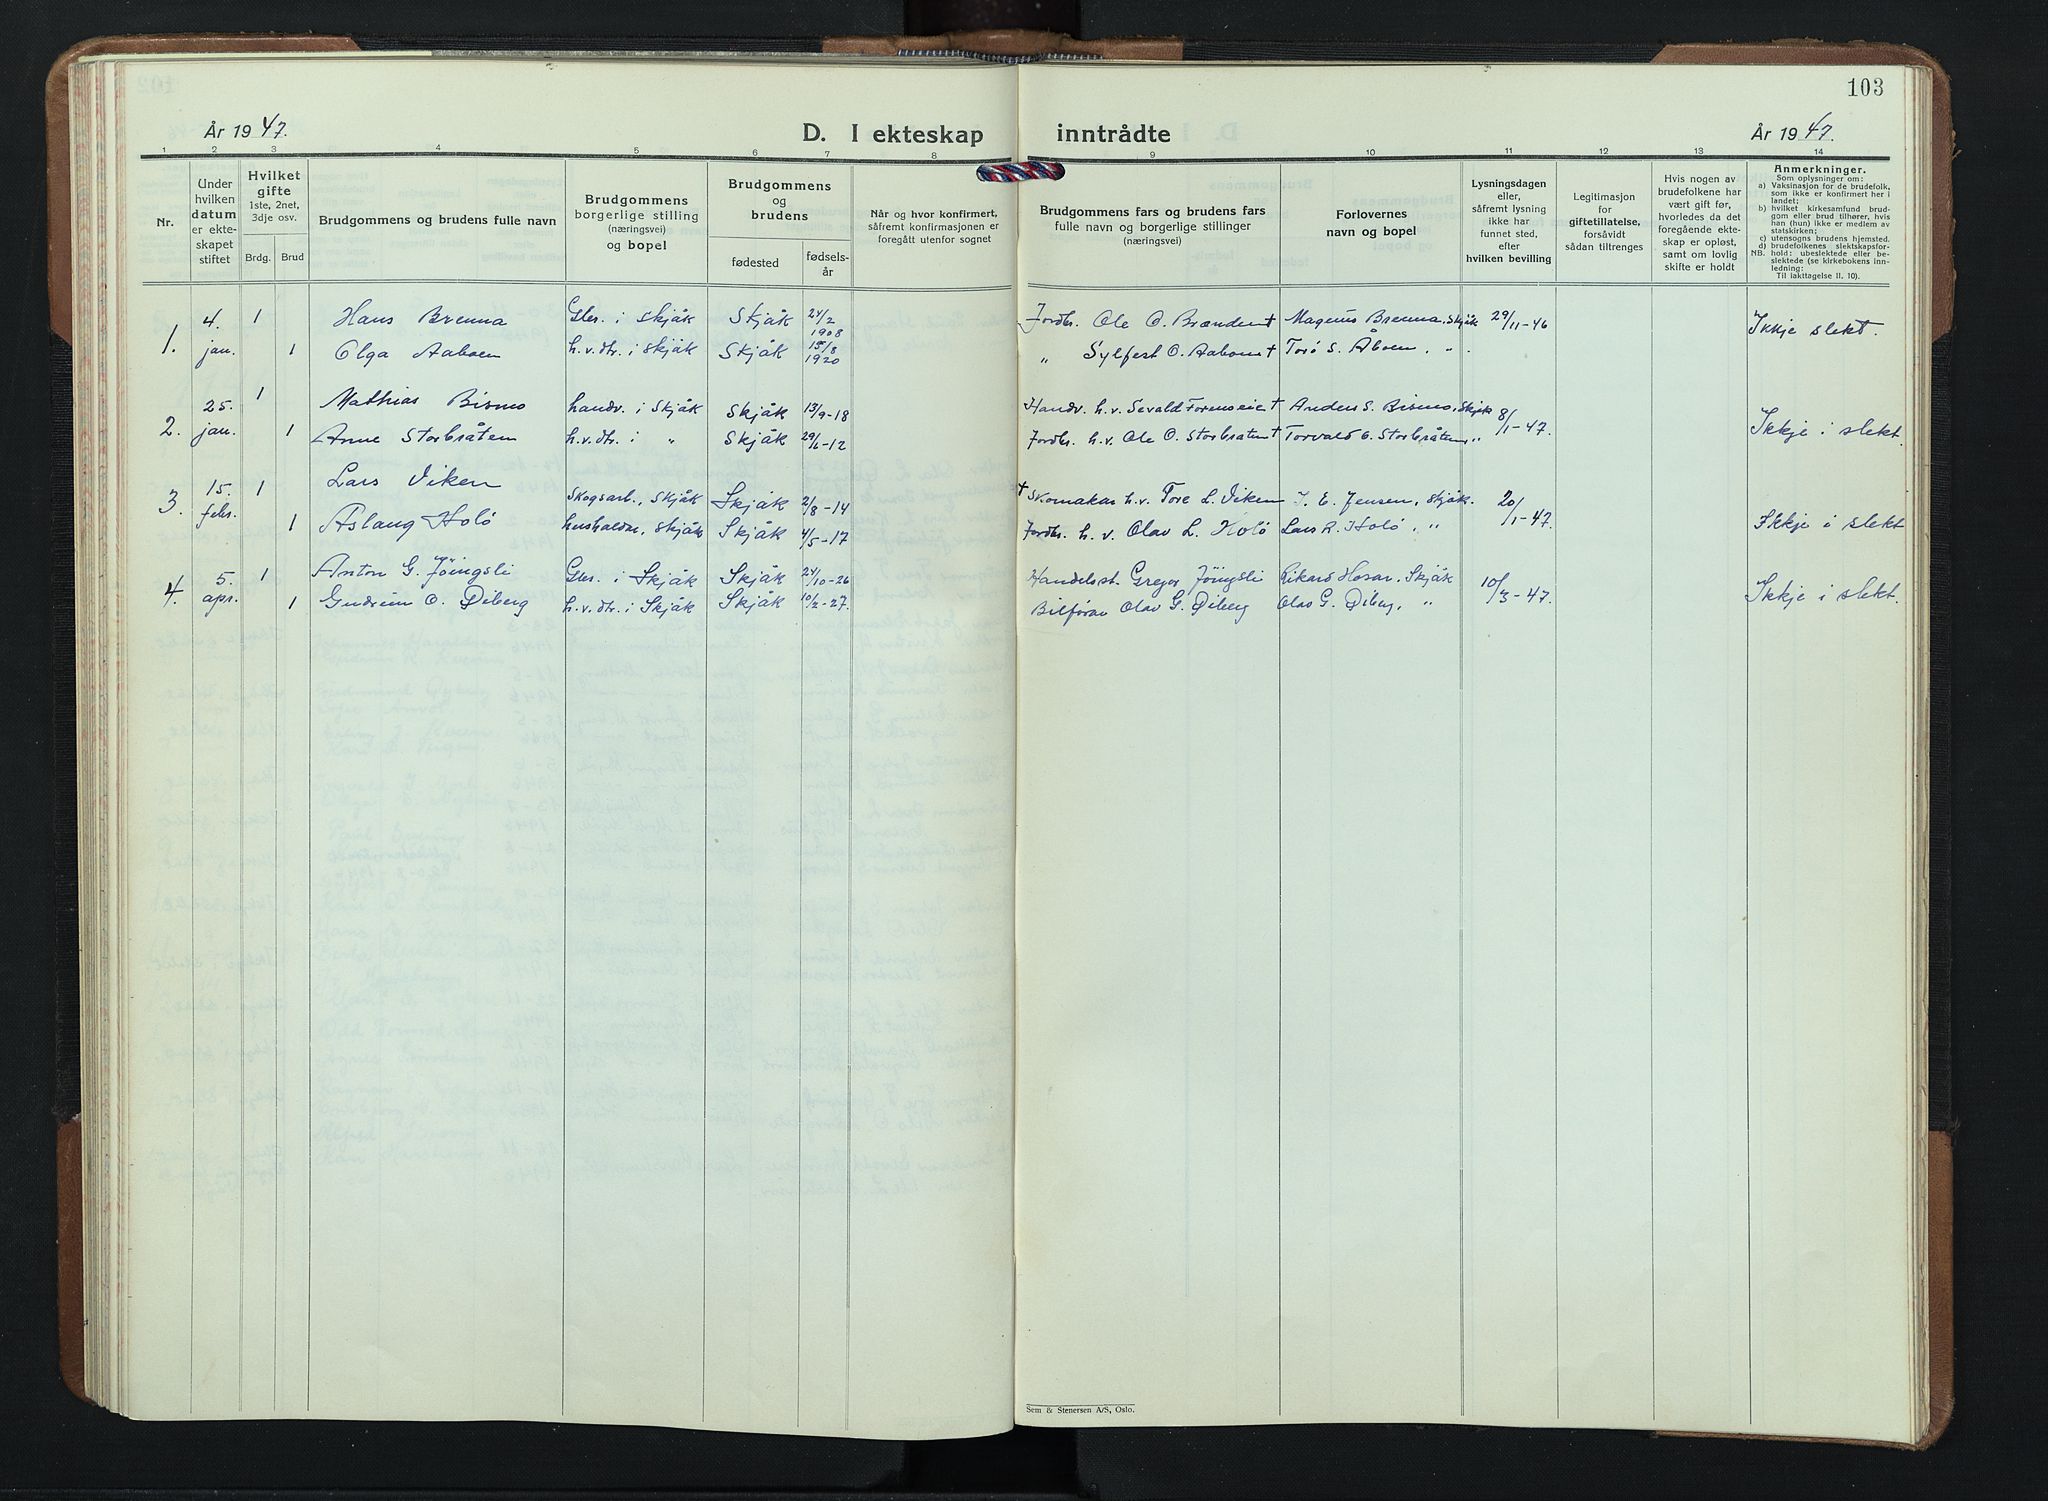 103
År 1947.
D. I ekteskap inntrådte
År 1947.
1 2 3 4 5 6 7 8 9 10 11 12 13 14
Nr.
Under hvilken datum er ekteskapet stiftet
Hvilket gifte 1ste, 2net, 3dje osv.
Brdg. Brud
Brudgommens og brudens fulle navn
Brudgommens borgerlige stilling (næringsvei) og bopel
Brudgommens og brudens
fødested
fødselsår
Når og hvor konfirmert, såfremt konfirmasjonen er foregått utenfor sognet
Brudgommens fars og brudens fars fulle navn og borgerlige stillinger (næringsvei)
Forlovernes navn og bopel
Lysningsdagen eller, såfremt lysning ikke har funnet sted, efter hvilken bevilling
Legitimasjon for giftetillatelse, forsåvidt sådan tiltrenges
Hvis nogen av brudefolkene har vært gift før, hvorledes da det foregående ekteskap er opløst, samt om lovlig skifte er holdt
Anmerkninger.
Som oplysninger om:
a) Vaksinasjon for de brudefolk, som ikke er konfirmert her i landet;
b) hvilket kirkesamfund brudgom eller brud tilhører, hvis han (hun) ikke er medlem av statskirken;
c) utensogns brudens hjemsted.
d) brudefolkenes slektskapsforhold: ubeslektede eller beslektede (se kirkebokens innledning:
NB.
Til iakttagelse II. 10).
1. 4. jan. 1 Hans Brenna Gbr. i Skjåk Skjåk 24/2 1908 Jordbr. Ole O. Brænden † Magnus Brenna, Skjåk 29/11-46 Ikkje slekt.
1 Olga Aaboen h.v.dtr. i Skjåk Skjåk 15/8 1920 „ Sylfest O. Aaboen † Torø S. Åboen, „.
2. 25. jan. 1 Mathias Bismo handv. i Skjåk Skjåk 13/9-18 Handv. h.v. Sevald Forenseie † Anders S. Bismo, Skjåk 8/1-47. Ikkje i slekt.
1 Anne Storbråten h.v.dtr. i „ Skjåk 29/1-12 Jordbr. h.v. Ole O. Storbråten † Torvald O. Storbråten, „
3. 15. febr. 1 Lars Viken Skogsarb., Skjåk Skjåk 2/8-14 † Skomakar h.v. Tore L. Viken J. E. Jensen, Skjåk. 20/1-47. Ikkje i slekt
1 Aslaug Holø hushaldn., Skjåk Skjåk 4/5-17 Jordbr. h.v. Olav L. Holø Lars R. Holø, „
4. 5. apr. 1 Anton G. Jøingsli Gbr. i Skjåk Skjåk 24/10-26 Handelsst. Gregor Jøingsli Rikard Hosar, Skjåk 10/3-47. Ikkje i slekt.
1 Gudrun O. Øiberg h.v.dtr. i Skjåk Skjåk 10/2-27. Bilførar Olav G. Øiberg Olav G. Øiberg, „
Sem & Stenersen A/S, Oslo.